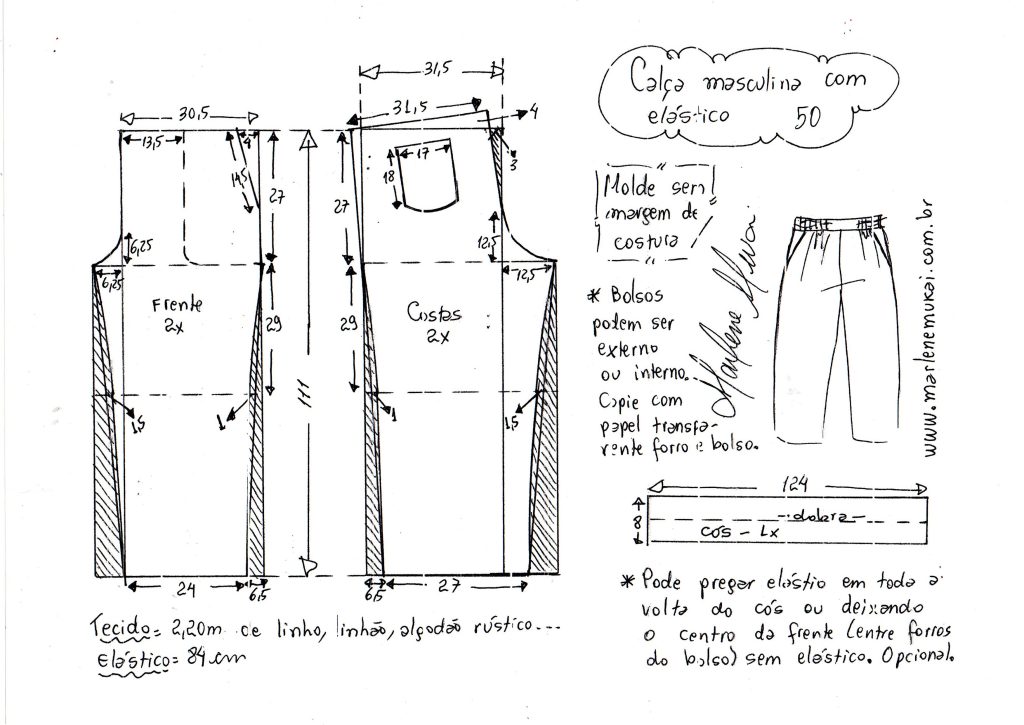 31,5
30,5
31,5
4
13,5
4
14,5
27
27
17
18
3
6,25
6,25
12,5
12,5
Frente
2x
Costas
2x
29
29
111
1,5
1
1
1,5
24
6,5
6,5
27
Tecido = 2,20m de linho, linhão, algodão rústico...
Elástico = 84 cm
Calça masculina com
elástico 50
Molde sem
margem de
costura
Marlene Mukai
* Bolsos
podem ser
externo
ou interno.
Copie com
papel transpa-
rente forro e bolso.
www.marlenemukai.com.br
124
8
--dobra--
cós - 1x
* Pode pregar elástio em toda a
volta do cós ou deixando
o centro da frente (entre forros
do bolso) sem elástico. Opcional.